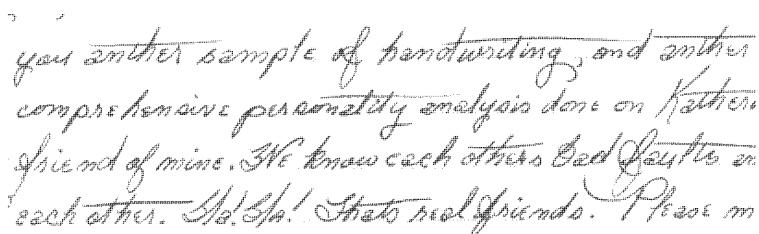 you anther sample of handwriting, and anther
comprehensive personatity analysis done on Kather
friend of mine. We know each others Bad Faults an
each other. Ha! Ha! Thats real friends. Please m